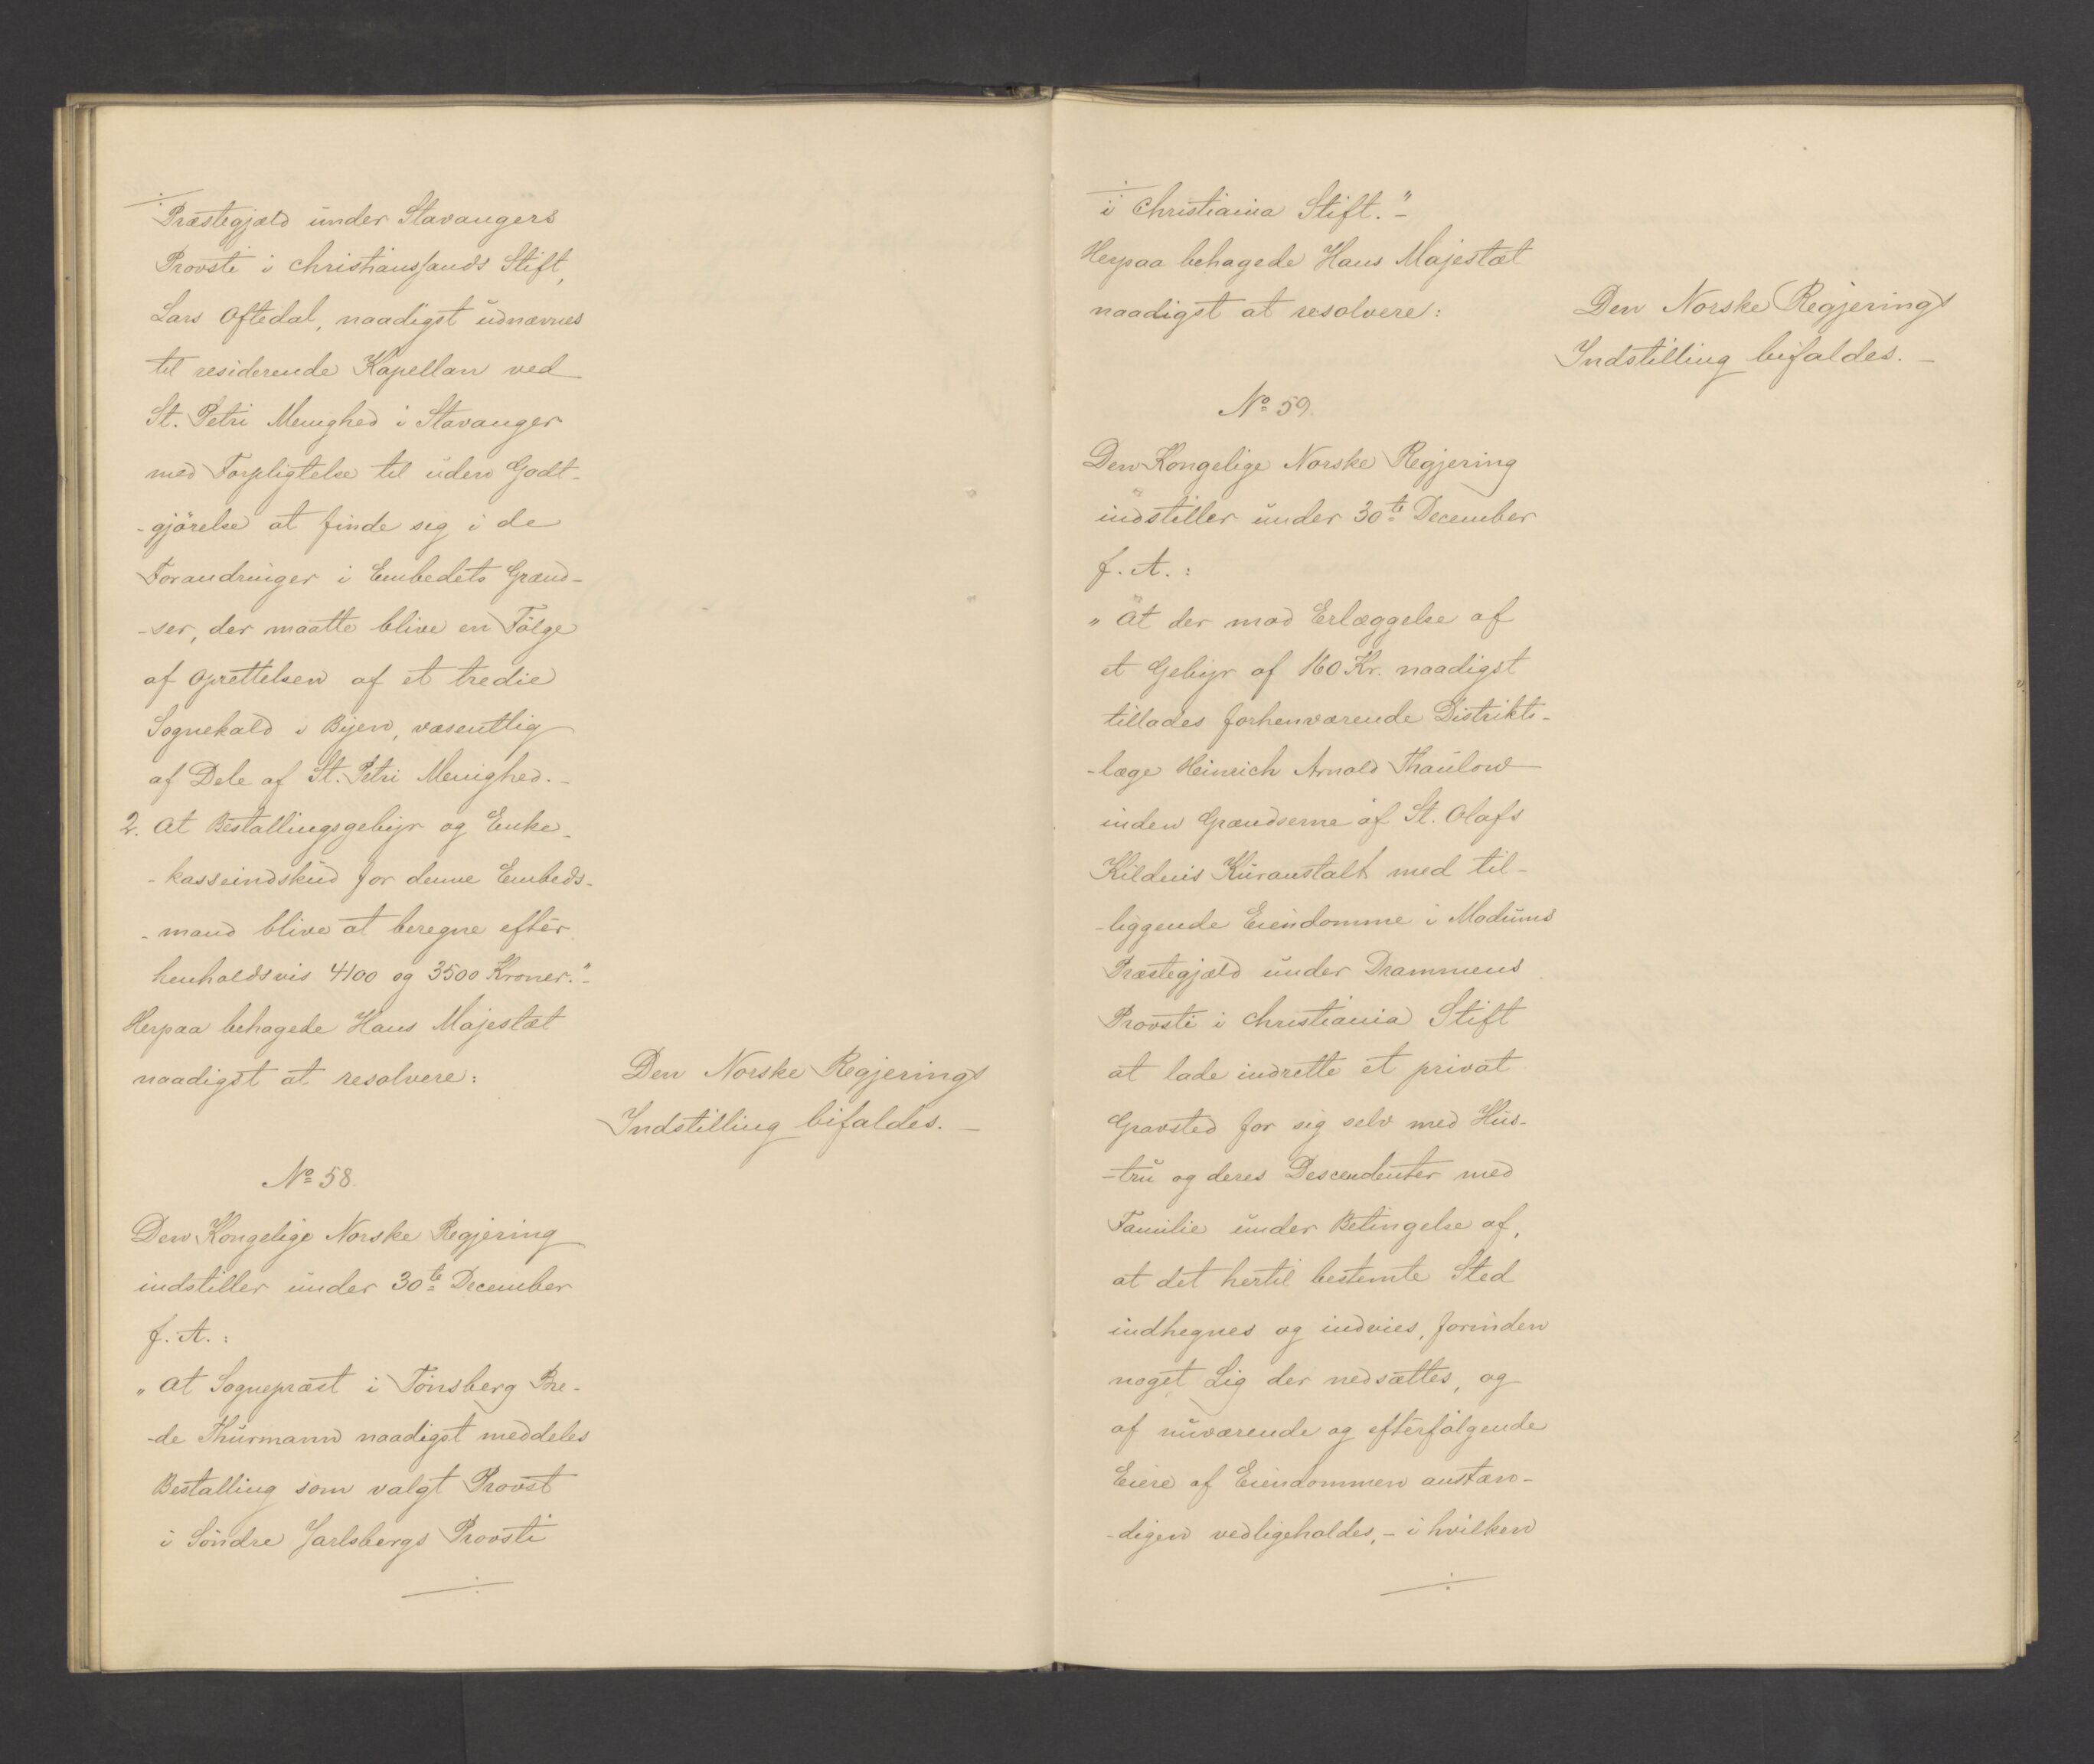 Præstegjæld under Stavangers
Provsti i Christianssands Stift,
Lars Oftedal, naadigst udnævnes
til residerende Kapellan ved
St. Petri Menighed i Stavanger
med Forpligtelse til uden Godt-
-gjörelse at finde sig i de
Forandringer i Embedets Grænd-
-ser, der maatte blive en Fölge
af Oprettelsen af et tredie
Sognekald i Byen, væsentlig
af Dele af St. Petri Menighed.-
2. At Bestallingsgebyr og Enke-
-kasseindskud for denne Embeds-
-mand blive at beregne efter
henholdsvis 4100 og 3500 Kroner."-
Herpaa behagede Hans Majestæt
naadigst at resolvere:
Den Norske Regjerings
Indstilling bifaldes.-
No 58.
Den Kongelige Norske Regjering
indstiller under 30te December
f. A.:
"At Sognepræst i Tönsberg Bre-
-de Thurmann naadigst meddeles
Bestalling som valgt Provst
i Söndre Jarlsbergs Provsti
i Christiania Stift."-
Herpaa behagede Hans Majestæt
naadigst at resolvere:
Den Norske Regjerings
Indstilling bifaldes.-
No 59.
Den Kongelige Norske Regjering
indstiller under 30te December
f. A.:
"At der mod Erlæggelse af
et Gebyr af 160 Kr. naadigst
tillades forhenværende Distrikts-
-læge Heinrich Arnold Thaulow
inden Grændserne af St. Olafs
Kildens Kuranstalt med til-
-liggende Eiendomme i Modums
Præstegjæld under Drammens
Provsti i Christiania Stift
at lade indrette et privat
Gravsted for sig selv med Hus-
-tru og deres Descendenter med
Familie under Betingelse af,
at det hertil bestemte Sted
indhegnes og indvies, forinden
noget Lig der nedsættes, og
af nuværende og efterfölgende
Eiere af Eiendommen anstæn-
-digen vedligeholdes,- i hvilken